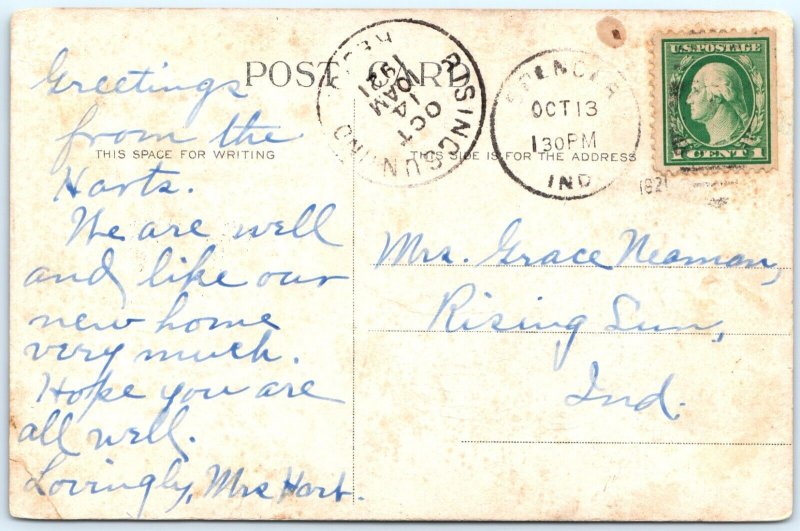 POST CARD
THIS SPACE FOR WRITING
THIS SIDE IS FOR THE ADDRESS
Greetings
from the
Harts.
We are well
and like our
new home
very much.
Hope you are
all well.
Lovingly, Mrs Hart.
RISING SUN, IND
OCT
14
10AM
1921
REC'D
SPENCER
OCT 13
130PM
IND
1921
U.S. POSTAGE
1 CENT 1
Mrs. Grace Neaman,
Rising Sun,
Ind.